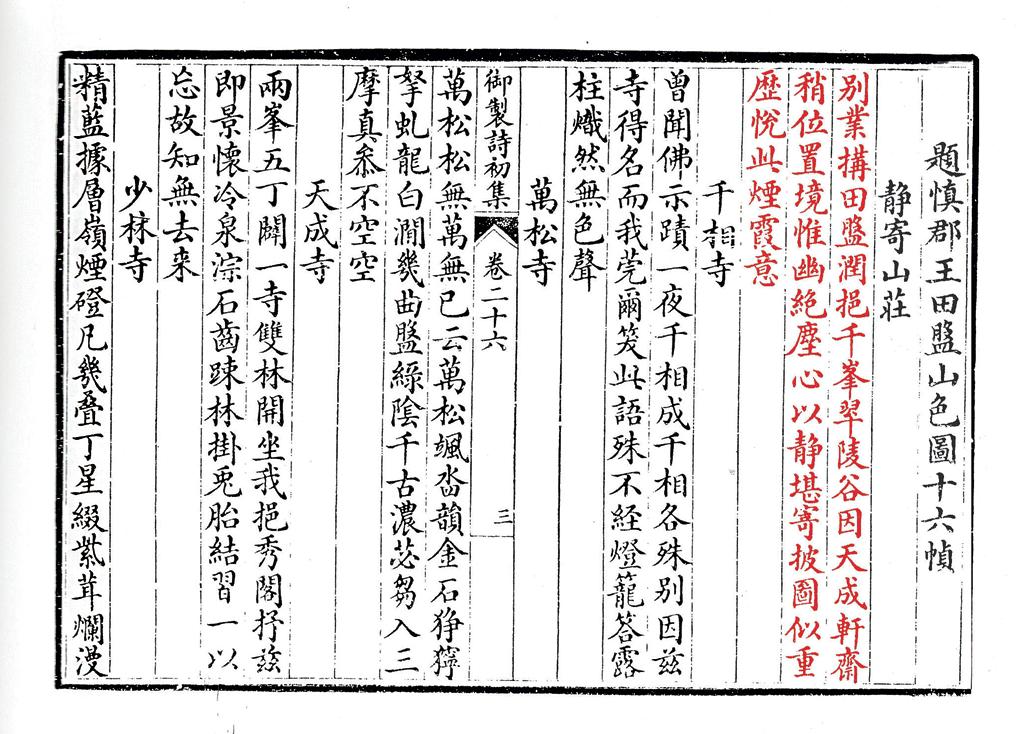 題慎郡王田盤山色圖十六幀
静寄山莊
別業搆田盤潤挹千峯翠陵谷因天成軒齋
稍位置境惟幽絶塵心以静堪寄披圖似重
歷悅此煙霞意
千相寺
曾聞佛示蹟一夜千相成千相各殊別因兹
寺得名而我莞爾笑此語殊不經燈籠答露
柱熾然無色聲
萬松寺
御製詩初集 卷二十六 三
萬松松無萬無已云萬松颯沓韻金石猙獰
拏虬龍白澗幾曲盤綠陰千古濃苾芻入三
摩真叅不空空
天成寺
兩峯五丁闢一寺雙林開坐我挹秀閣抒兹
即景懷冷泉淙石齒踈林掛兎胎結習一以
忘故知無去来
少林寺
精藍據層嶺煙磴凡幾叠丁星綴紫茸爛漫